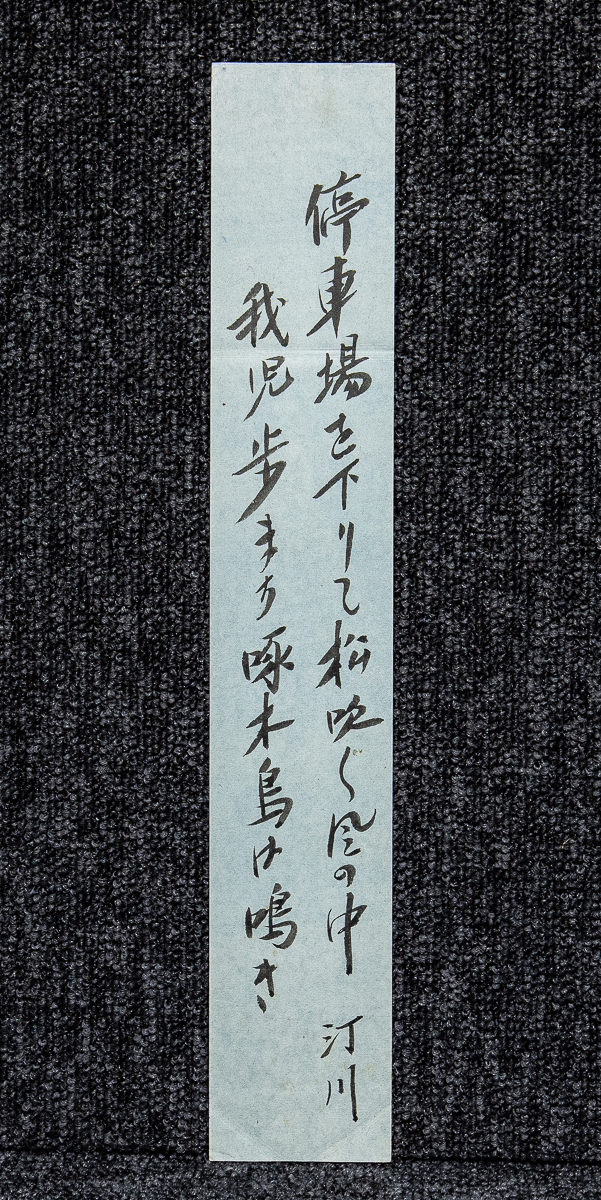 停車場を下りて松吹く風の中 汀川
我児歩まち啄木鳥は鳴き